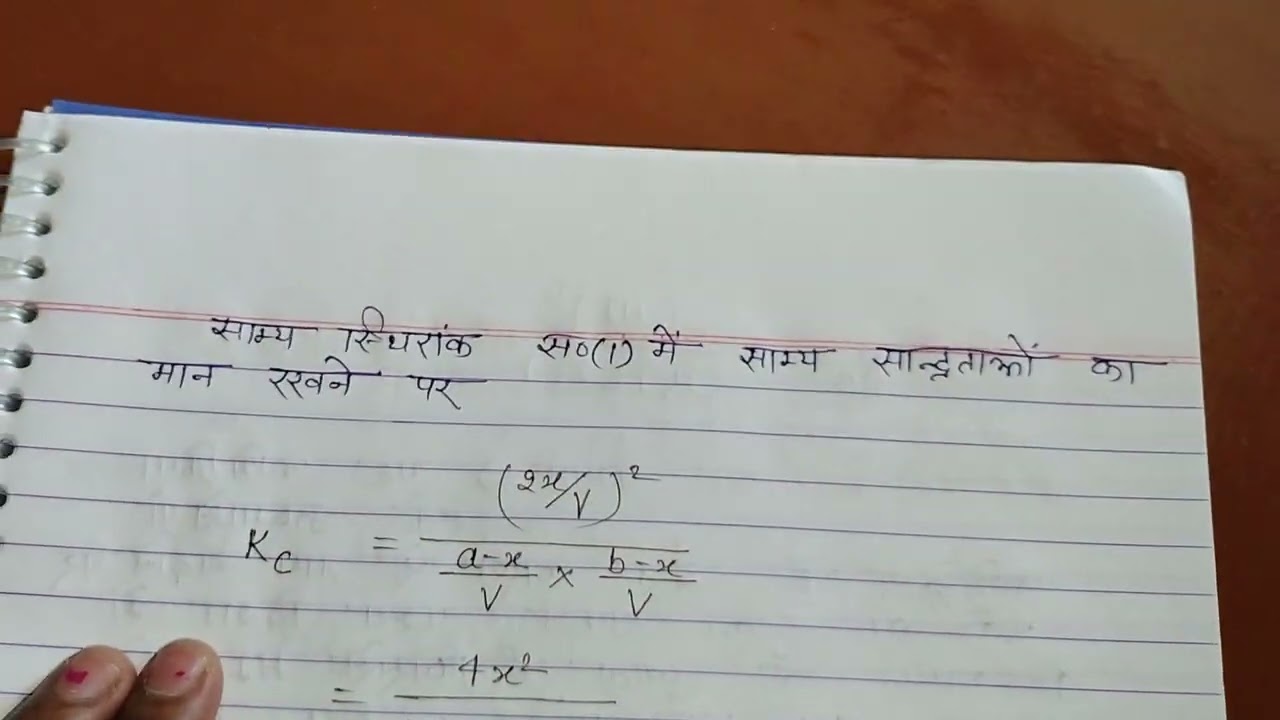 साम्य स्थिरांक स०(1) में साम्य सान्द्रताओं का
मान रखने पर
(2x/V)²
K_C = ―――――
a-x/V × b-x/V
= 4x²